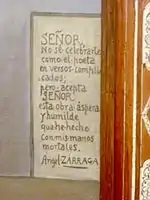 SEÑOR,
No sé celebrarte
como el poeta
en versos complicados;
pero acepta
SEÑOR,
esta obra áspera
y humilde
que he hecho
con mis manos
mortales.
Angel ZARRAGA